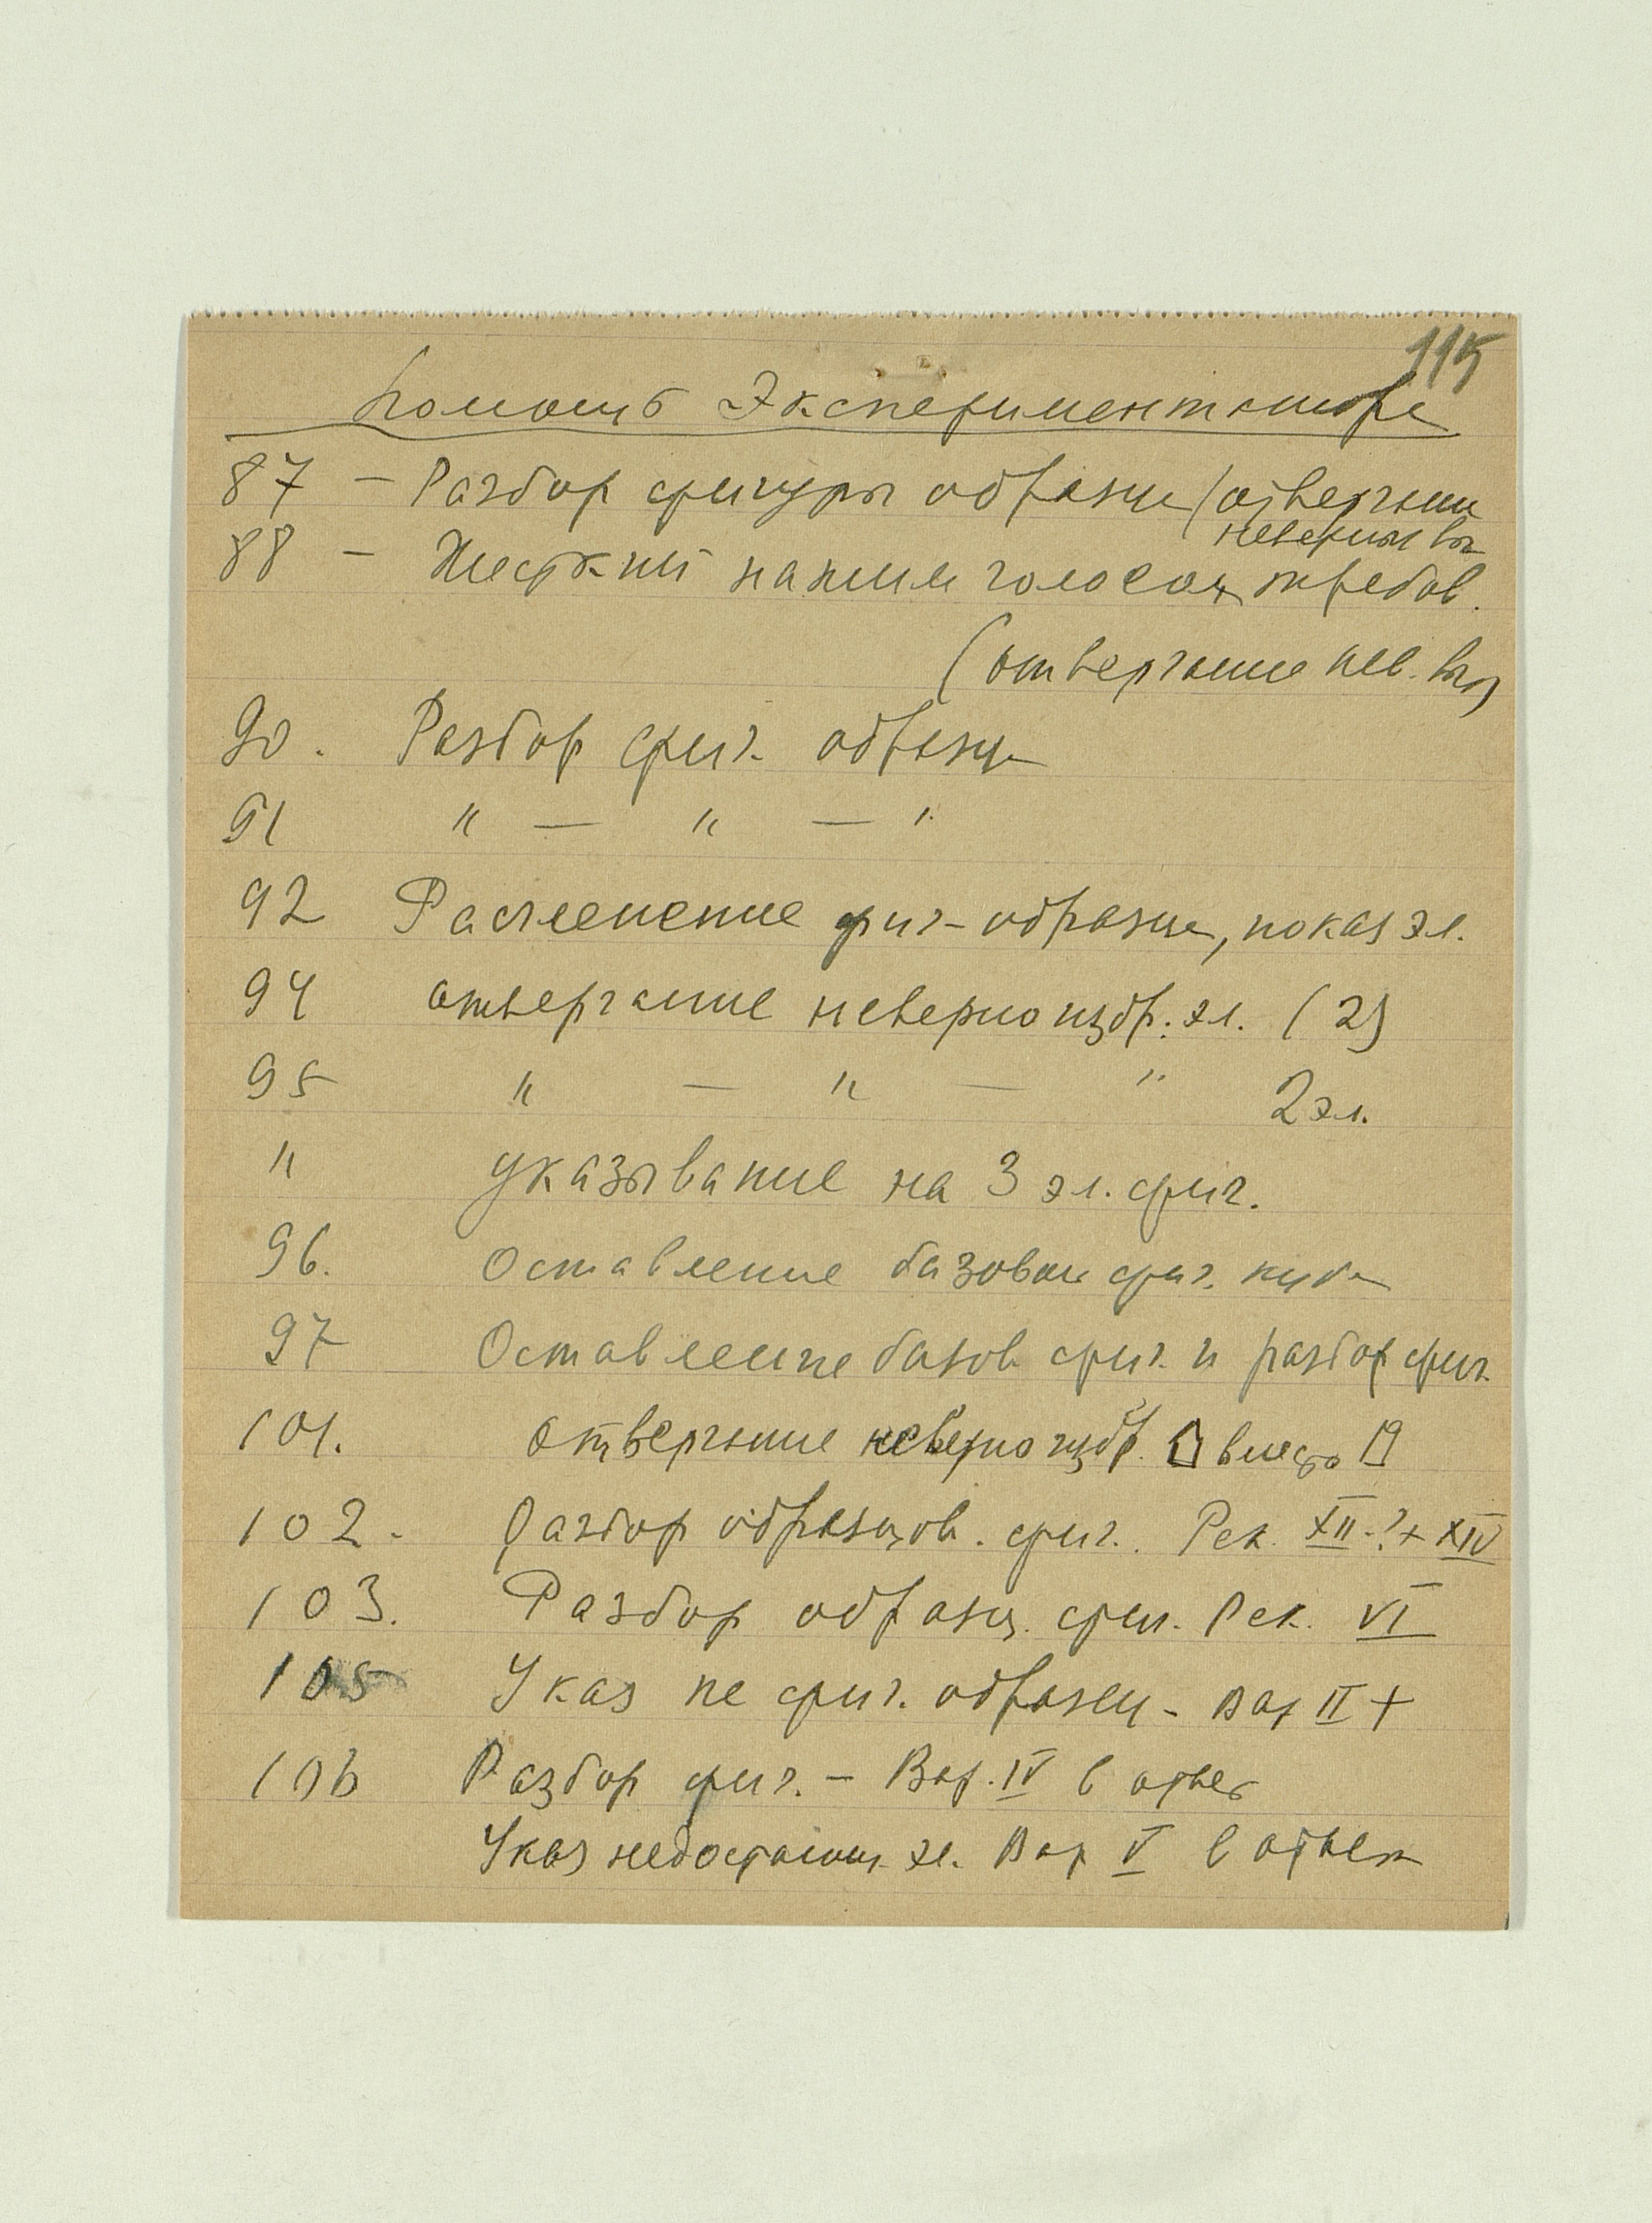 115
Помощь Экспериментатора
87 – Разбор фигуры образца (отвергание
неверных вы
88 – Жесткий нажим голосом, требов.
(отвергание нев. вы)
90. Разбор фиг. образца
91 " — " — "
92 Расчленение фиг-образца, показ эл.
94 отвергание неверно избр. эл. (2)
95 " — " — " 2 эл.
" указывание на 3 эл. фиг.
96. Оставление базовой фиг. куба
97 Оставление базов. фиг. и разбор фиг.
101. отвергание неверно избр. вместо
102. Разбор образцов. фиг. Рек. XII-?+ XIV
103. Разбор образц. фиг. Рек. VI
105 Указ не фиг. образец - Вар II +
106 Разбор фиг. – Вар. IV в ответ
Указ недостающ. эл. Вар V в ответ